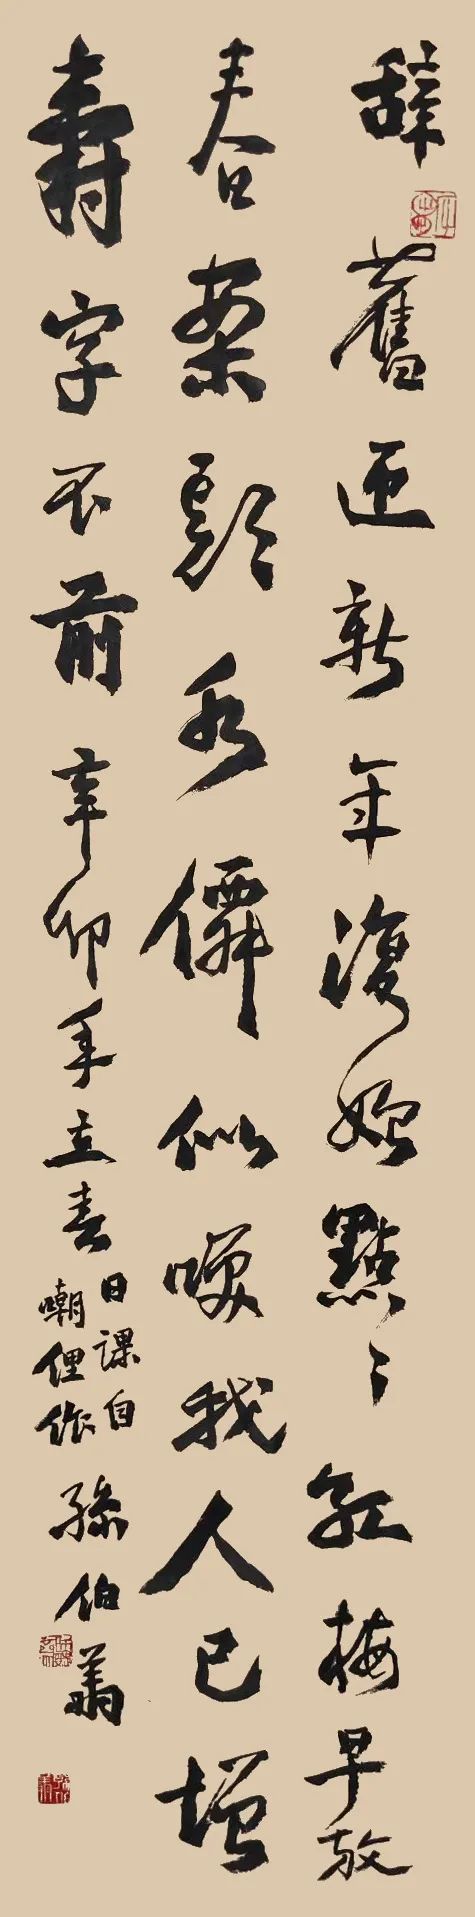 辞舊迎新年復始點〻紅梅早放
春案頭水僊似咲我人已增
壽字不前辛卯年立春
日課自
嘲俚作
孫伯翔